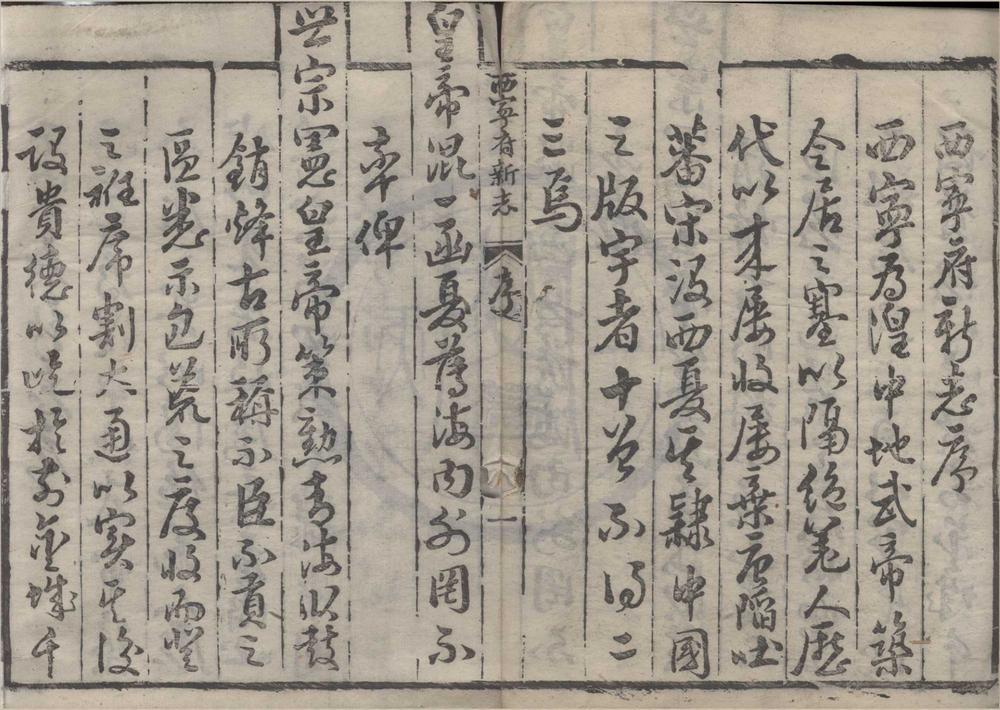 西寧府新志序
西寧為湟中地武帝築
令居之塞以隔絶羌人歷
代以来屢收屢棄唐陷吐
蕃宋没西夏其隸中國
之版宇者十曾不得二
三焉
西寧府新志 序 一
皇帝混一函夏薄海内外罔不
率俾
世宗憲皇帝策勳青海臥鼓
銷烽古所稱不臣不貢之
區悉示包荒之度收而登
之袵席割大通以實其後
設貴德以 於前金城千